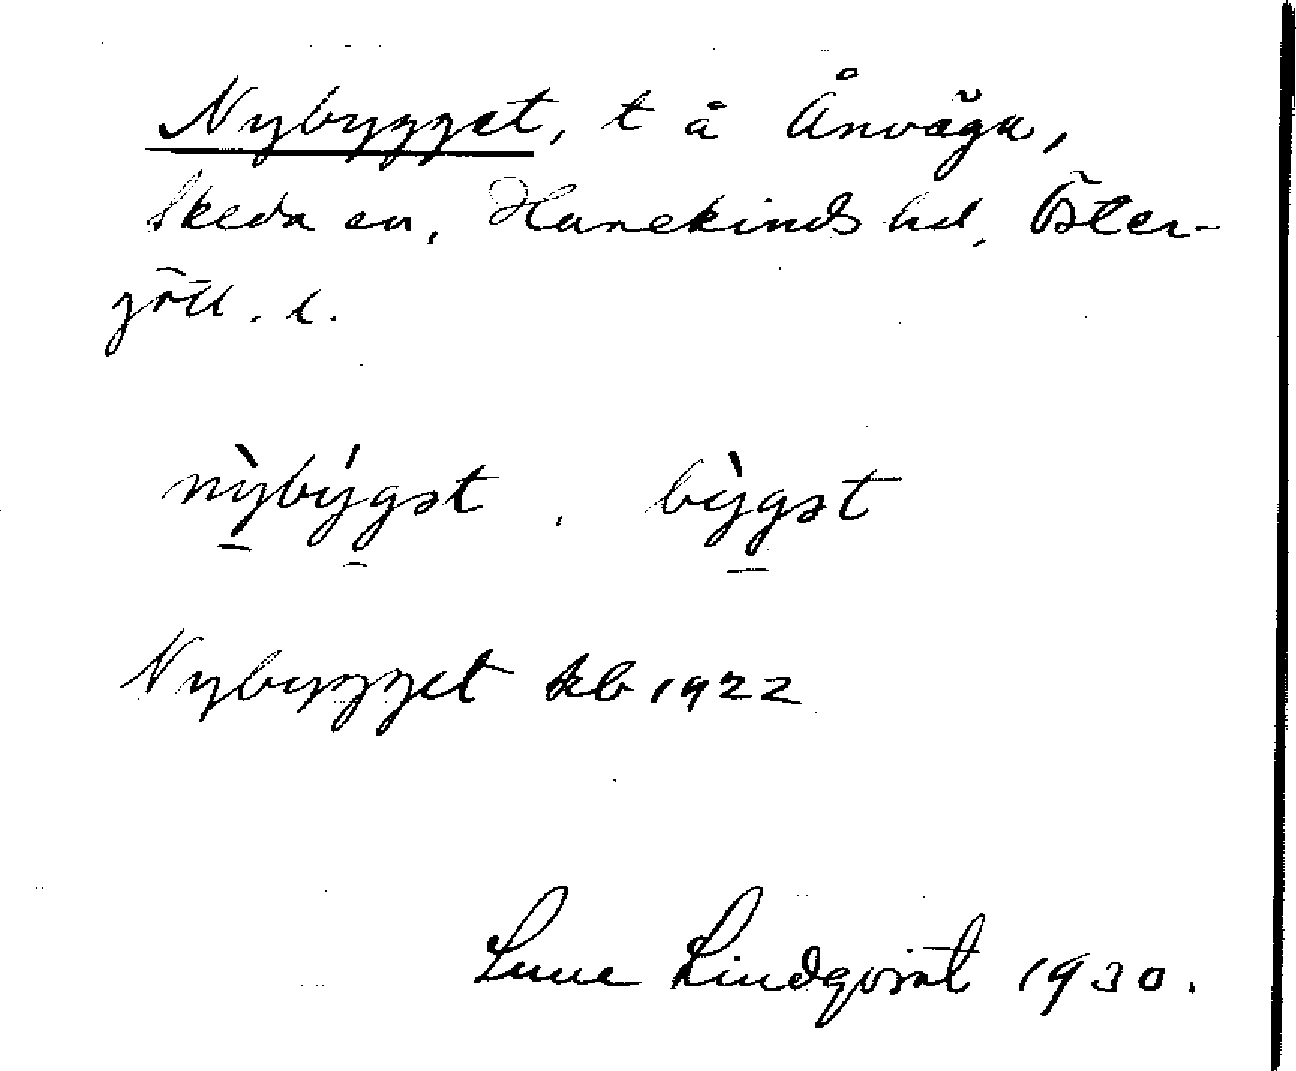 Nybygget, t å Ånväga,
Skeda sn, Hanekinds hd, Öster-
götl. l.
nỳbýgət . bỳgət
Nybygget kb 1922
Sune Lindqvist 1930.